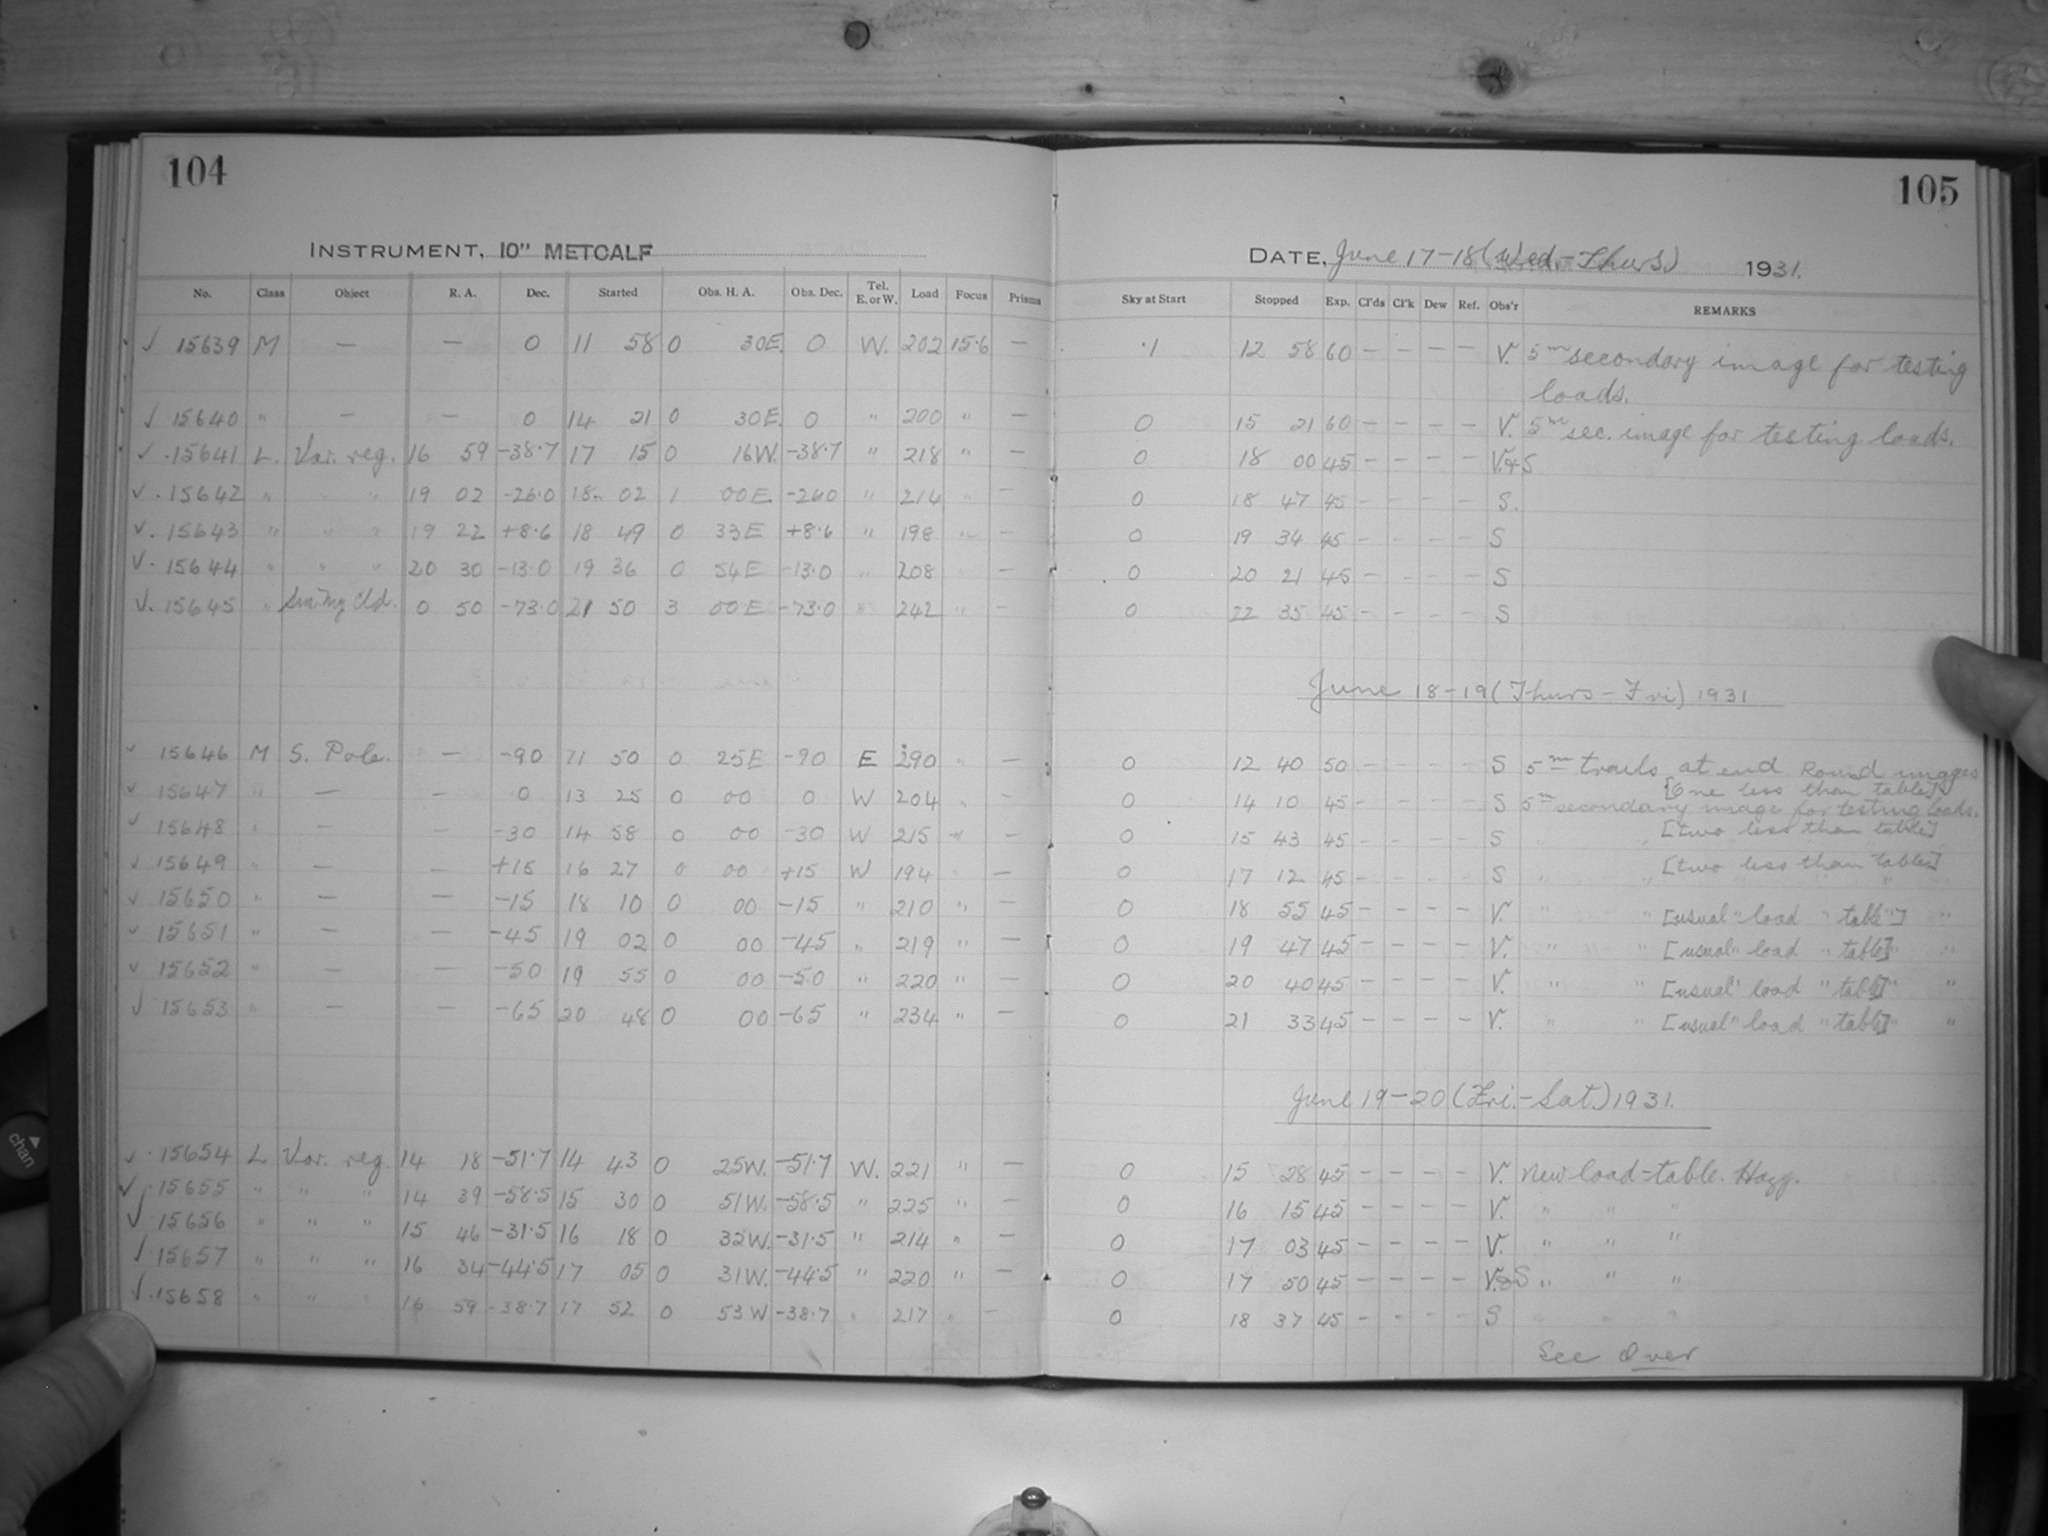 104
105
INSTRUMENT, 10" METCALF
DATE, June 17-18 (Wed.-Thurs) 1931.
No. Class Object R. A. Dec. Started Obs. H. A. Obs. Dec. Tel. E. or W. Load Focus Prisms Sky at Start Stopped Exp. Cl'ds Cl'k Dew Ref. Obs'r REMARKS
√ 15639 M — — 0 11 58 0 30E. 0 W. 202 15.6 — .1 12 58 60 — — — — V. 5m secondary image for testing
loads.
√ 15640 " — — 0 14 21 0 30E. 0 " 200 " — 0 15 21 60 — — — — V. 5m sec. image for testing loads.
√ .15641 L. Var. reg. 16 59 -38.7 17 15 0 16W. -38.7 " 218 " — 0 18 00 45 — — — — V.&S
√ .15642 " " " 19 02 -26.0 18 02 1 00E -26.0 " 214 " — 0 18 47 45 — — — — S.
√. 15643 " " " 19 22 +8.6 18 49 0 33E +8.6 " 198 " — 0 19 34 45 — — — — S
√. 15644 " " " 20 30 -13.0 19 36 0 54E -13.0 " 208 " — 0 20 21 45 — — — — S
√. 15645 " Sm Mg Cld. 0 50 -73.0 21 50 3 00E -73.0 " 242 " — 0 22 35 45 — — — — S
June 18-19 (Thurs-Fri) 1931
√ 15646 M S. Pole. — -90 11 50 0 25E -90 E 290 " — 0 12 40 50 — — — — S 5m trails at end Round images
[One less than table]
√ 15647 " — — 0 13 25 0 00 0 W 204 " — 0 14 10 45 — — — — S 5m secondary image for testing loads.
[two less than table]
√ 15648 " — — -30 14 58 0 00 -30 W 215 " — 0 15 43 45 — — — — S " "
[two less than table]
√ 15649 " — — +15 16 27 0 00 +15 W 194 " — 0 17 12 45 — — — — S " " "
√ 15650 " — — -15 18 10 0 00 -15 " 210 " — 0 18 55 45 — — — — V. " " [usual" load " table"] "
√ 15651 " — — -45 19 02 0 00 -45 " 219 " — 0 19 47 45 — — — — V. " " [usual" load " table]" "
√ 15652 " — — -50 19 55 0 00 -50 " 220 " — 0 20 40 45 — — — — V. " " [usual" load " table]" "
√ 15653 " — — -65 20 48 0 00 -65 " 234 " — 0 21 33 45 — — — — V. " " [usual" load " table]" "
June 19-20 (Fri.-Sat.) 1931.
√ .15654 L Var. reg. 14 18 -51.7 14 43 0 25W. -51.7 W. 221 " — 0 15 28 45 — — — — V. New load-table. Hazy.
√ .15655 " " " 14 39 -58.5 15 30 0 51W. -58.5 " 225 " — 0 16 15 45 — — — — V. " " "
√ 15656 " " " 15 46 -31.5 16 18 0 32W. -31.5 " 214 " — 0 17 03 45 — — — — V. " " "
√ .15657 " " " 16 34 -44.5 17 05 0 31W. -44.5 " 220 " — 0 17 50 45 — — — — V.&S " " "
√ .15658 " " " 16 59 -38.7 17 52 0 53W -38.7 " 217 " — 0 18 37 45 — — — — S " " "
See Over
chan